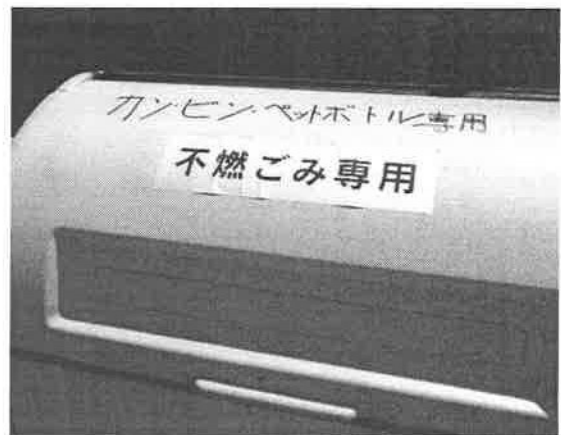 カン・ビン・ペットボトル専用
不燃ごみ専用